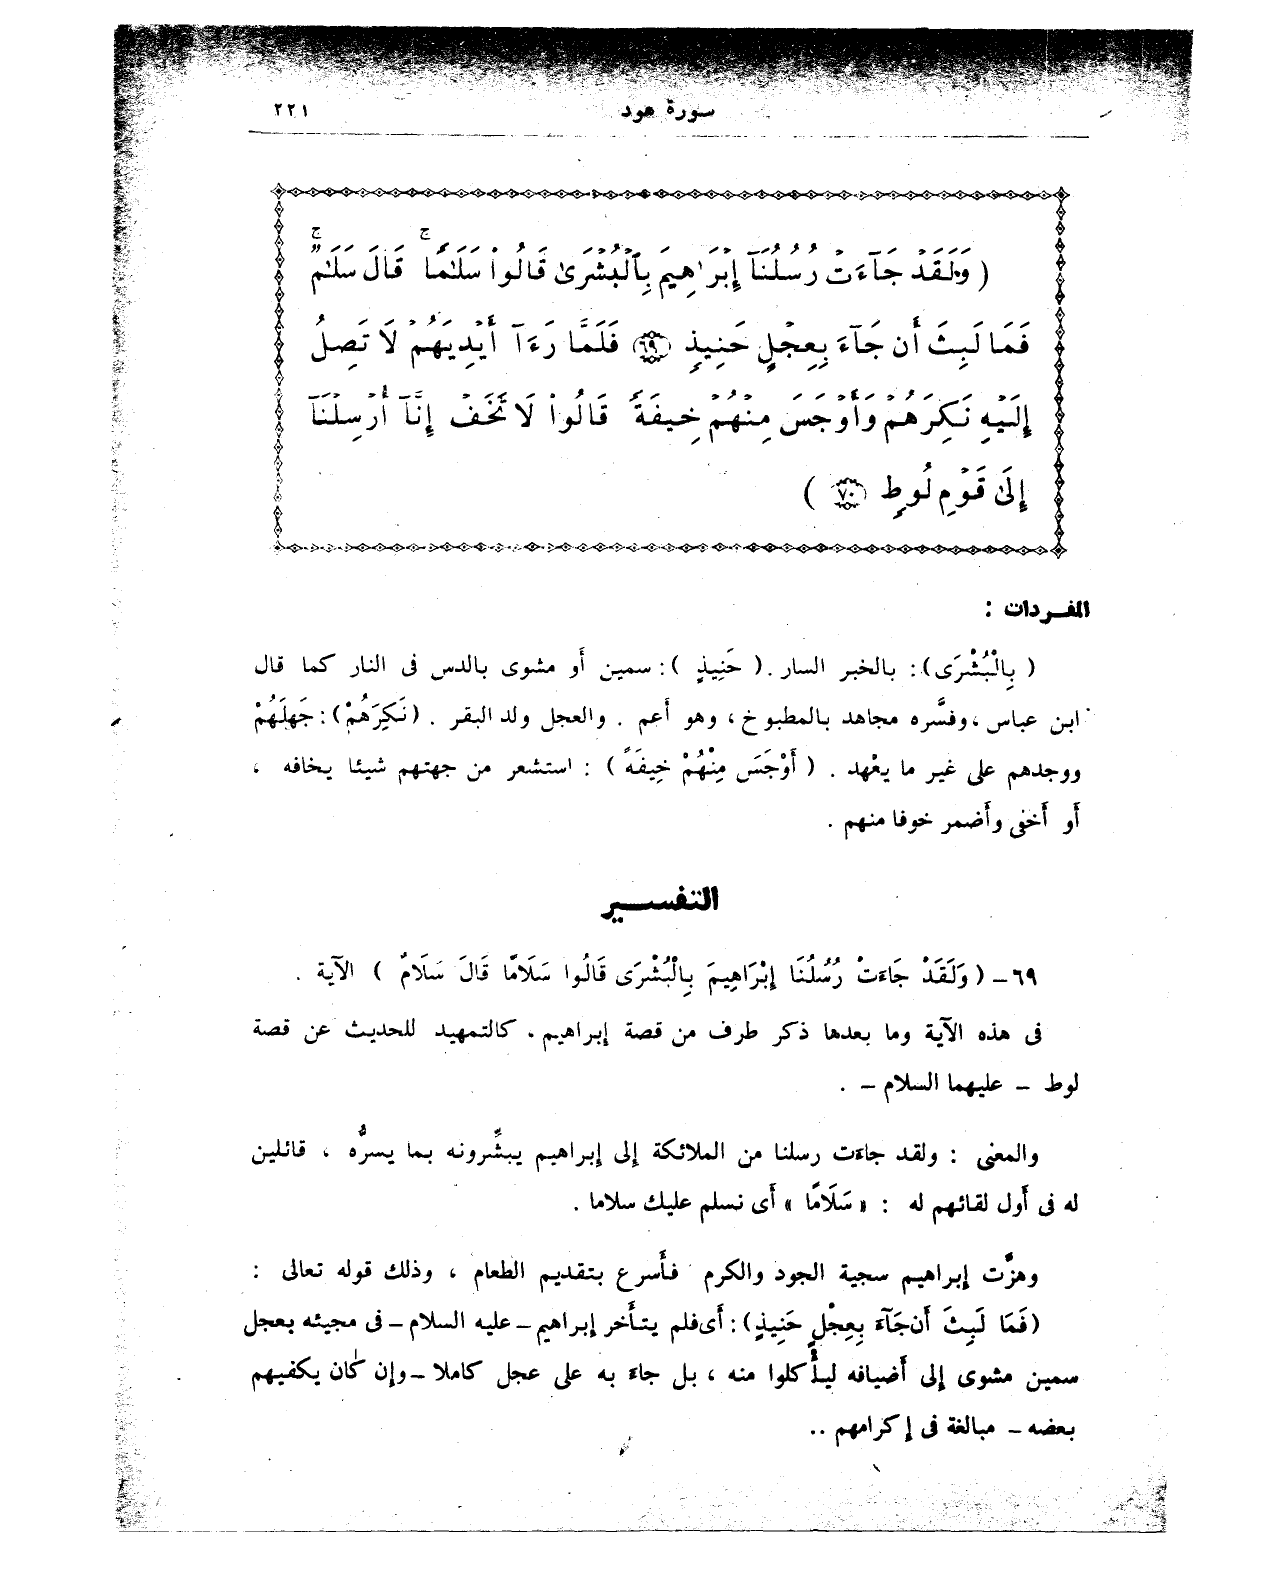 سورة هود
٢٢١
( وَلَقَدْ جَآءَتْ رُسُلُنَآ إِبْرَٰهِيمَ بِٱلْبُشْرَىٰ قَالُوا۟ سَلَٰمًا ۖ قَالَ سَلَٰمٌ ۖ
فَمَا لَبِثَ أَن جَآءَ بِعِجْلٍ حَنِيذٍ ٦٩ فَلَمَّا رَءَآ أَيْدِيَهُمْ لَا تَصِلُ
إِلَيْهِ نَكِرَهُمْ وَأَوْجَسَ مِنْهُمْ خِيفَةً قَالُوا۟ لَا تَخَفْ إِنَّآ أُرْسِلْنَآ
إِلَىٰ قَوْمِ لُوطٍ ٧٠ )
المفـردات :
( بِالْبُشْرَى): بالخبر السار . ( حَنِيذٍ ): سمين أَو مشوى بالدس فى النار كما قال
ابن عباس ، وفسَّره مجاهد بالمطبوخ ، وهو أَعم . والعجل ولد البقر . (نَكِرَهُمْ): جَهِلَهُمْ
ووجدهم على غير ما يعْهد . ( أَوْجَسَ مِنْهُمْ خِيفَةً ) : استشعر من جهتهم شيئا يخافه ،
أَو أَخفى وأَضمر خوفا منهم .
التفســـير
٦٩ – ( وَلَقَدْ جَاءَتْ رُسُلُنَا إِبْرَاهِيمَ بِالْبُشْرَى قَالُوا سَلَامًا قَالَ سَلَامٌ ) الآية .
فى هذه الآية وما بعدها ذكر طرف من قصة إبراهيم . كالتمهيد للحديث عن قصة
لوط – عليهما السلام – .
والمعنى : ولقد جاءت رسلنا من الملائكة إلى إبراهيم يبشِّرونه بما يسرُّه ، قائلين
له فى أَول لقائهم له : « سَلَامًا » أَى نسلم عليك سلاما .
وهزَّت إبراهيم سجية الجود والكرم فأَسرع بتقديم الطعام ، وذلك قوله تعالى :
(فَمَا لَبِثَ أَن جَآءَ بِعِجْلٍ حَنِيذٍ): أَى فلم يتأَخر إبراهيم – عليه السلام – فى مجيئه بعجل
سمين مشوى إلى أَضيافه ليأْكلوا منه ، بل جاءَ به على عجل كاملا – وإن كان يكفيهم
بعضه – مبالغة فى إكرامهم ..